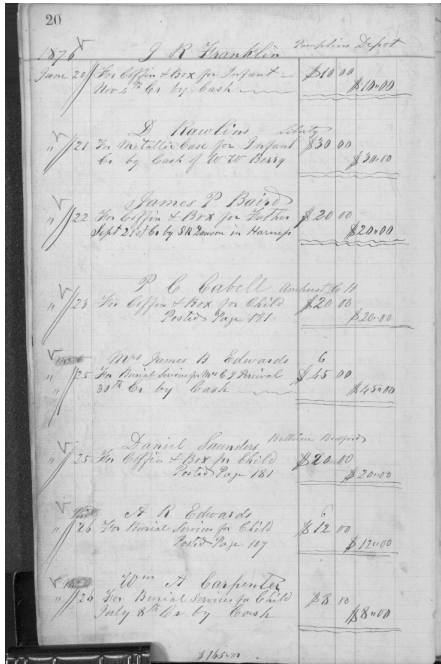 20
1876 J R Franklin Pamplins Depot
June 20 For Coffin & Box for Infant $10 00
Nov 4th Cr by Cash $10.00
D Rawlins Liberty
" 21 For Metallic Case for Infant $30 00
Cr by Cash of W W Berry $30.00
James P Baird
" 22 For Coffin & Box for Father $20 00
Sept 21st Cr by in Harness $20.00
P C Cabell Amherst C H
" 23 For Coffin & Box for Child $20 00
Posted Page 181 $20.00
Mrs James B Edwards 6
" 25 For Burial Services for Mrs C J Percival $45 00
30th Cr by Cash $45.00
Daniel Saunders Bedford
" 25 For Coffin & Box for Child $20.00
Posted Page 181 $20.00
A R Edwards 6
" 26 For Burial Services for Child $12 00
Posted Page 107 $12.00
Wm A Carpenter
" 26 For Burial Services for Child $8 00
July 8th Cr by Cash $8.00
$165.00